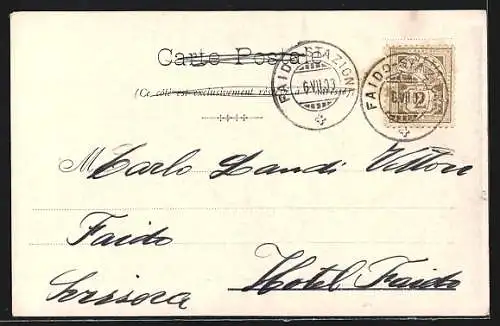 Carte Postale
FAIDO STAZIONE
6 VII 03
FAIDO STAZIONE
6 VII
2
(Ce côté est exclusivement réservé à l'adresse).
M Carlo Landi Vittore
Faido
Hotel Faido